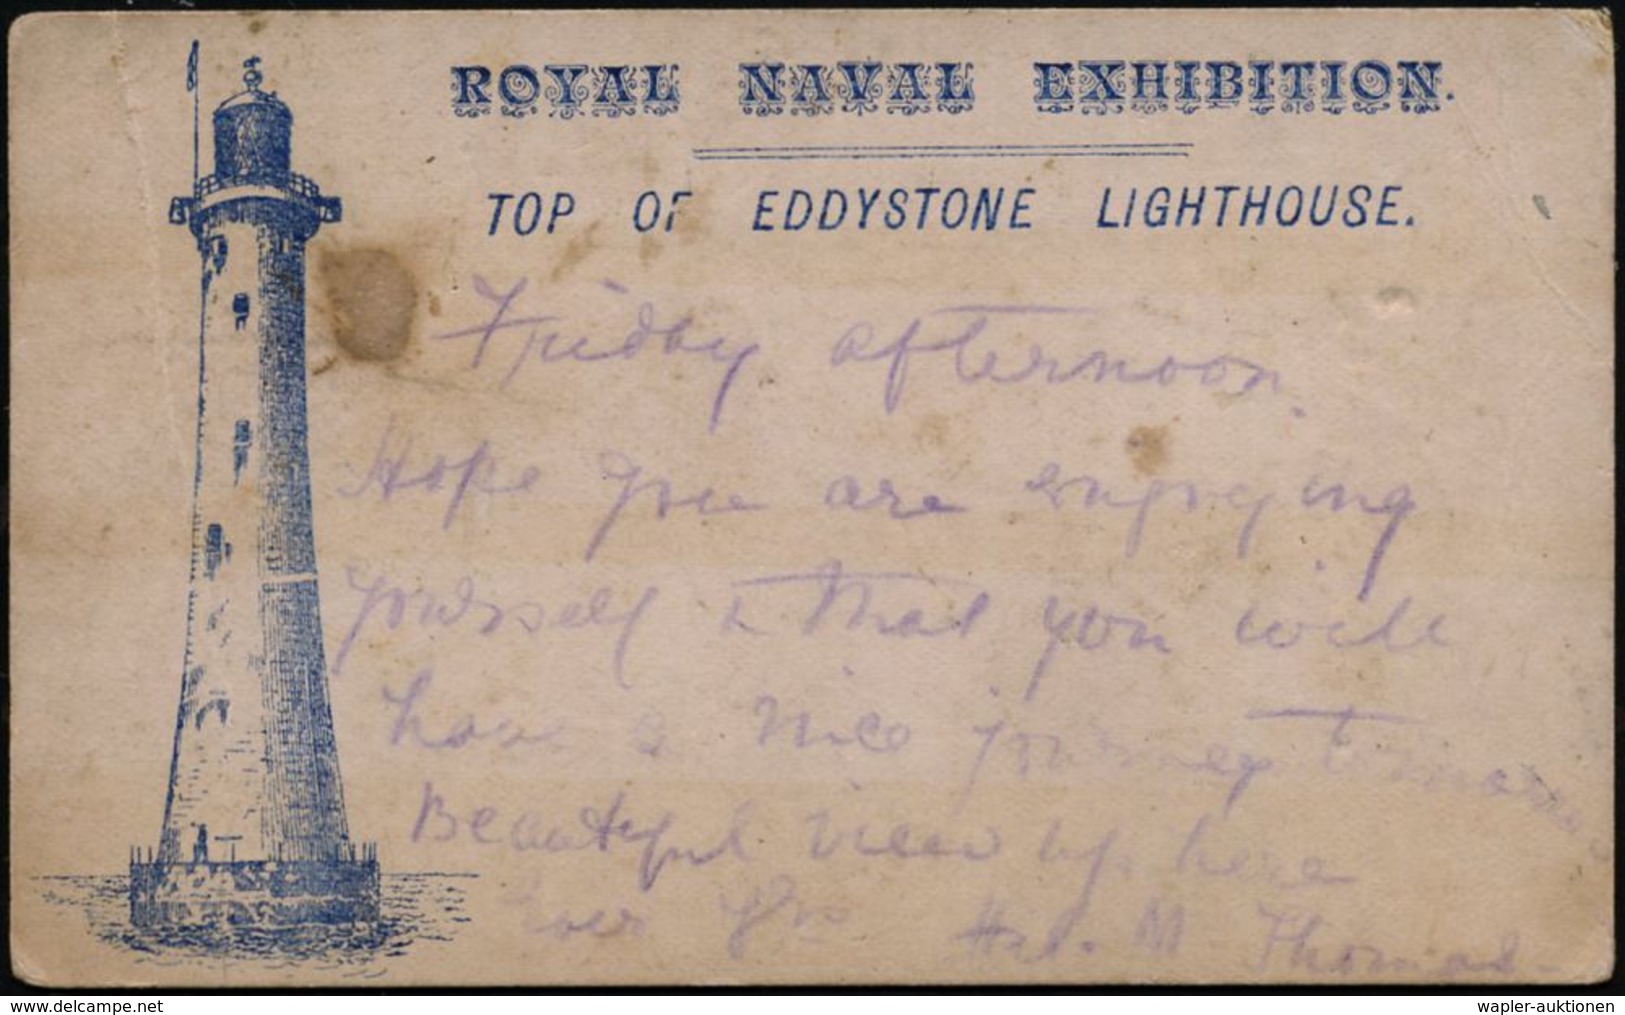 ROYAL NAVAL EXHIBITION.
TOP OF EDDYSTONE LIGHTHOUSE.
Friday afternoon.
Hope you are enjoying
yourself & that you will
have a nice journey tomorrow
Beautiful view up here
Ever Yrs M. Thomas
www.delcampe.net
wapler-auktionen